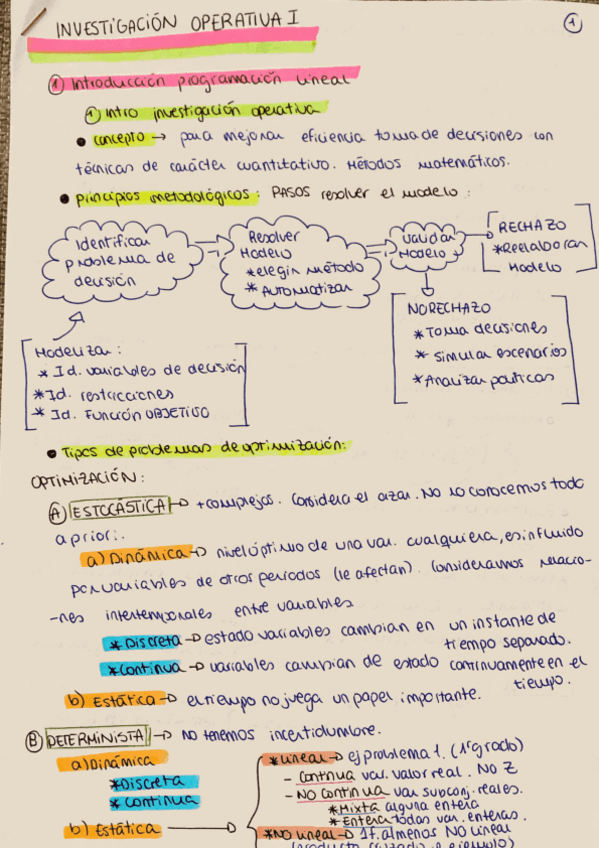 INVESTIGACIÓN OPERATIVA I
1
① Introducción programación lineal
① Intro investigación operativa
• concepto → para mejorar eficiencia toma de decisiones con
técnicas de carácter cuantitativo. Métodos matemáticos.
• principios metodológicos: PASOS resolver el modelo:
Identificar
problema de
decisión
Resolver
Modelo
* elegir método
* AUTOMATIZAR
validar
Modelo
RECHAZO
* Reelaborar
Modelo
Modelizar:
* Id. variables de decisión
* Id. restricciones
* Id. Función OBJETIVO
NO RECHAZO
* Toma decisiones
* Simular escenarios
* Analizar políticas
• Tipos de problemas de optimización:
OPTIMIZACIÓN:
Ⓐ ESTOCÁSTICA → + complejos. Considera el azar. No lo conocemos todo
a priori.
a) Dinámica → nivel óptimo de una var. cualquiera, es influido
por variables de otros periodos (le afectan). Consideramos relacio-
-nes intertemporales entre variables
* Discreta → estado variables cambian en un instante de
tiempo separado.
* Continua → variables cambian de estado continuamente en el
tiempo.
b) Estática → el tiempo no juega un papel importante.
Ⓑ DETERMINISTA → No tenemos incertidumbre.
a) Dinámica
* Discreta
* Continua
b) Estática →
* Lineal → ej problema 1. (1º grado)
- Continua var. valor real. No Z
- NO Continua var subconj. reales.
* Mixta alguna entera
* Entera todas var. enteras.
* NO Lineal → 1 f. al menos NO lineal